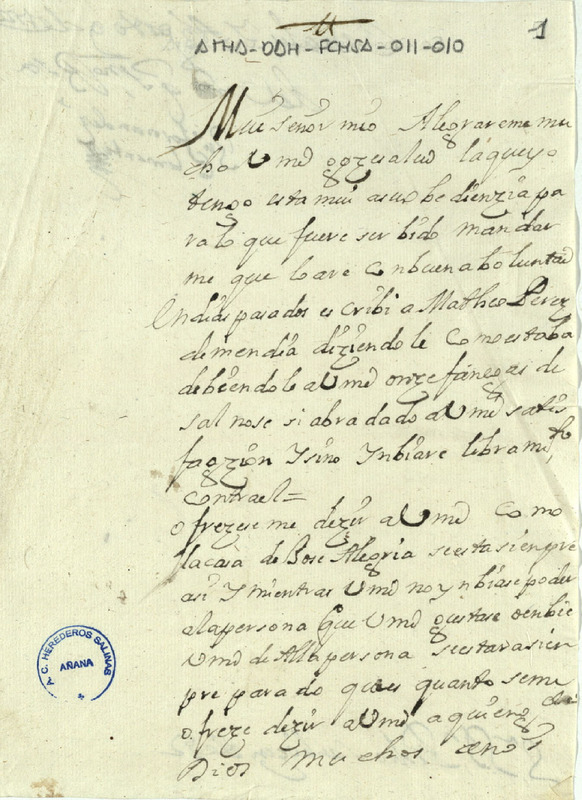 11
ATHA-DAH-FCHSA-011-010
1
Mui señor mio Alegrareme mu
cho Vmd goze salud la que yo
tengo esta mui a su obedienzia pa
ra lo que fuere serbido mandar
me que lo are con buena boluntad
En dias pasados escribi a Matheo Perez
de mendia diziendole como estaba
debiendole a Vmd onze fanegas de
sal no se si abra dado a Vmd satis
fazion Y sino Ynbiare libramto
contra el =
ofrezeseme dezir a Vmd como
la casa de Bose Alegria se esta sienpre
asi Y mientras Vmd no ynbiase poder
a la persona que Vmd gustase o enbie
Vmd de Alla persona se estara sien
pre parado que es quanto se me
ofreze dezir a Vmd a quien gde
Dios muchos anos
A. C. HEREDEROS SALINAS
AÑANA